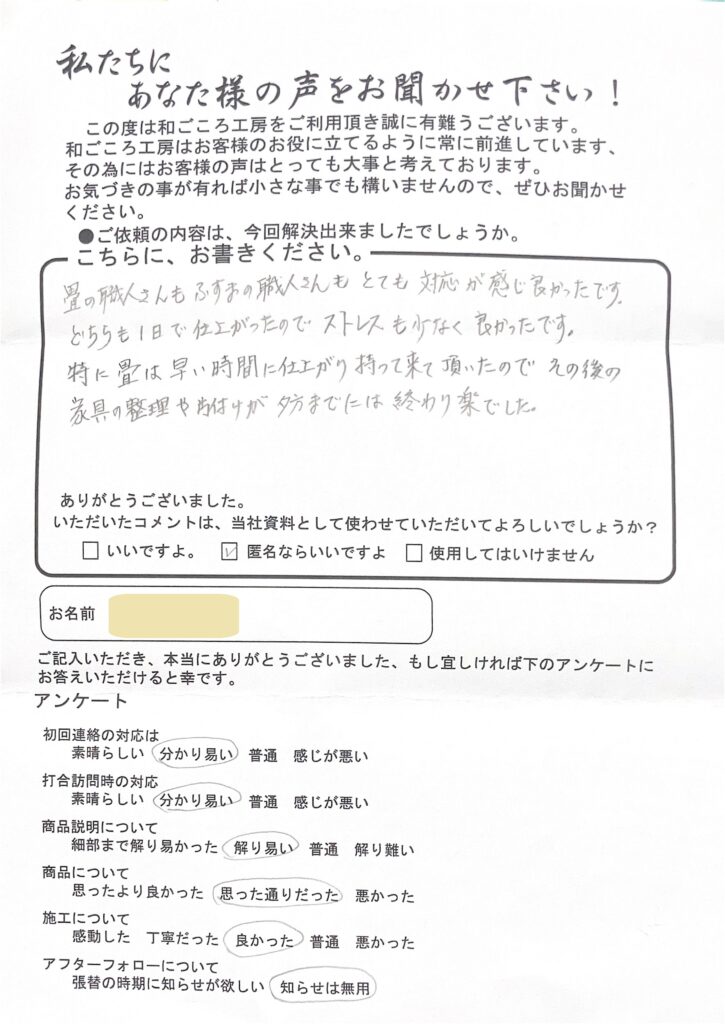 私たちに
あなた様の声をお聞かせ下さい！
この度は和ごころ工房をご利用頂き誠に有難うございます。
和ごころ工房はお客様のお役に立てるように常に前進しています、
その為にはお客様の声はとっても大事と考えております。
お気づきの事が有れば小さな事でも構いませんので、ぜひお聞かせ
ください。
●ご依頼の内容は、今回解決出来ましたでしょうか。
こちらに、お書きください。
畳の職人さんもふすまの職人さんも とても 対応が感じ良かったです。
どちらも1日で仕上がったので ストレスも少なく 良かったです。
特に畳は早い時間に仕上がり持って来て頂いたので その後の
家具の整理や片付けが 夕方までには 終わり楽でした。
ありがとうございました。
いただいたコメントは、当社資料として使わせていただいてよろしいでしょうか？
□ いいですよ。 ☑ 匿名ならいいですよ □ 使用してはいけません
お名前
ご記入いただき、本当にありがとうございました、もし宜しければ下のアンケートに
お答えいただけると幸です。
アンケート
初回連絡の対応は
素晴らしい 分かり易い 普通 感じが悪い
打合訪問時の対応
素晴らしい 分かり易い 普通 感じが悪い
商品説明について
細部まで解り易かった 解り易い 普通 解り難い
商品について
思ったより良かった 思った通りだった 悪かった
施工について
感動した 丁寧だった 良かった 普通 悪かった
アフターフォローについて
張替の時期に知らせが欲しい 知らせは無用